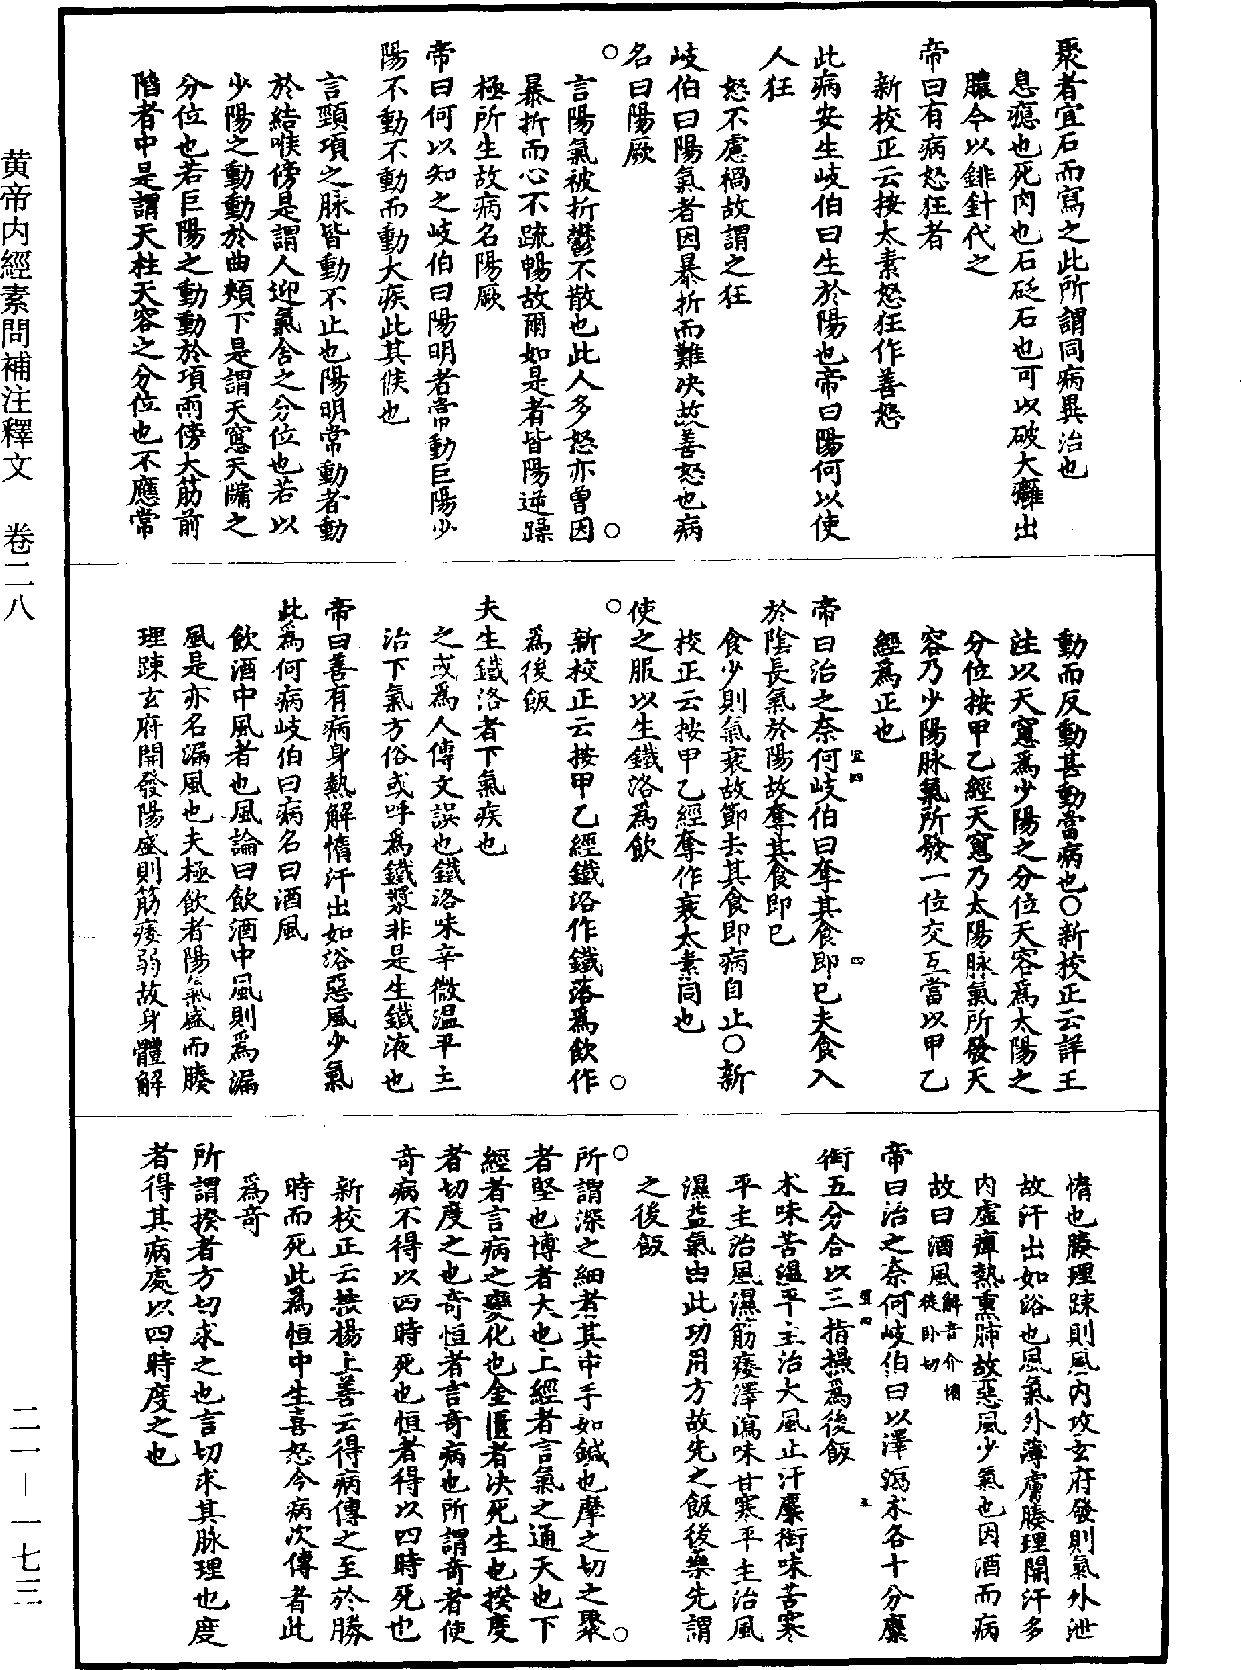 聚者宜石而寫之此所謂同病異治也
息瘜也死肉也石砭石也可以破大癰出
膿今以鈹針代之
帝曰有病怒狂者
新校正云按太素怒狂作善怒
此病安生岐伯曰生於陽也帝曰陽何以使
人狂
怒不慮禍故謂之狂
岐伯曰陽氣者因暴折而難決故善怒也病
名曰陽厥
言陽氣被折鬱不散也此人多怒亦曾因
暴折而心不疏暢故爾如是者皆陽逆躁
極所生故病名陽厥
帝曰何以知之岐伯曰陽明者常動巨陽少
陽不動不動而動大疾此其候也
言頸項之脉皆動不止也陽明常動者動
於結喉傍是謂人迎氣舍之分位也若以
少陽之動動於曲頰下是謂天窻天牖之
分位也若巨陽之動動於項兩傍大筋前
陷者中是謂天柱天容之分位也不應常
動而反動甚動當病也○新校正云詳王
注以天窻為少陽之分位天容為太陽之
分位按甲乙經天窻乃太陽脉氣所發天
容乃少陽脉氣所發一位交互當以甲乙
經為正也
帝曰治之奈何岐伯曰奪其食即已夫食入
於陰長氣於陽故奪其食即已
食少則氣衰故節去其食即病自止○新
校正云按甲乙經奪作衰太素同也
使之服以生鐵洛為飲
新校正云按甲乙經鐵洛作鐵落為飲作
為後飯
夫生鐵洛者下氣疾也
之或為人傳文誤也鐵洛味辛微溫平主
治下氣方俗或呼為鐵漿非是生鐵液也
帝曰善有病身熱解惰汗出如浴惡風少氣
此為何病岐伯曰病名曰酒風
飲酒中風者也風論曰飲酒中風則為漏
風是亦名漏風也夫極飲者陽氣盛而腠
理踈玄府開發陽盛則筋痿弱故身體解
惰也腠理踈則風内攻玄府發則氣外泄
故汗出如浴也風氣外薄膚腠理開汗多
内虛癉熱熏肺故惡風少氣也因酒而病
故曰酒風解音介惰徒卧切
帝曰治之奈何岐伯曰以澤瀉朮各十分麋
銜五分合以三指撮為後飯
朮味苦溫平主治大風止汗麋銜味苦寒
平主治風濕筋痿澤瀉味甘寒平主治風
濕益氣由此功用方故先之飯後藥先謂
之後飯
所謂深之細者其中手如鍼也摩之切之聚
者堅也博者大也上經者言氣之通天也下
經者言病之變化也金匱者決死生也揆度
者切度之也奇恒者言奇病也所謂奇者使
奇病不得以四時死也恒者得以四時死也
新校正云按楊上善云得病傳之至於勝
時而死此為恒中生喜怒今病次傳者此
為奇
所謂揆者方切求之也言切求其脉理也度
者得其病處以四時度之也
黄帝内經素問補注釋文 卷二八
二一—一七三